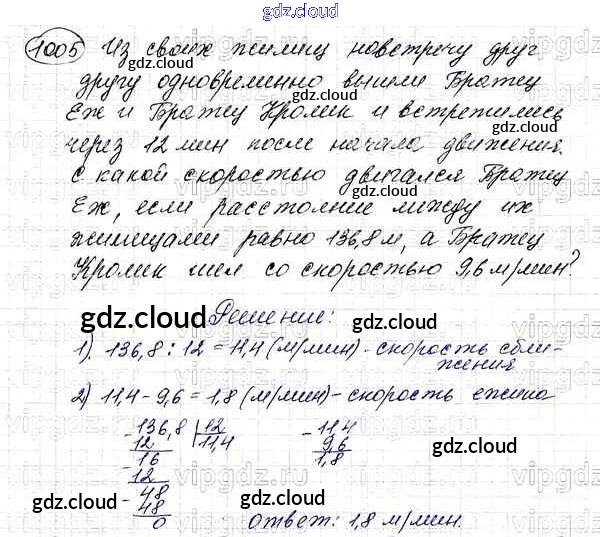 gdz.cloud
1005 Из своих жилищ навстречу друг
другу одновременно вышли Братец
Еж и Братец Кролик и встретились
через 12 мин после начала движения.
С какой скоростью двигался Братец
Еж, если расстояние между их
жилищами равно 136,8 м, а Братец
Кролик шел со скоростью 9,6 м/мин?
Решение:
1). 136,8 : 12 = 11,4 (м/мин) - скорость сбли-
жения
2) 11,4 - 9,6 = 1,8 (м/мин) - скорость ежика
- 136,8 | 12
12 11,4
- 16
12
- 48
48
0
- 11,4
9,6
1,8
ответ: 1,8 м/мин.